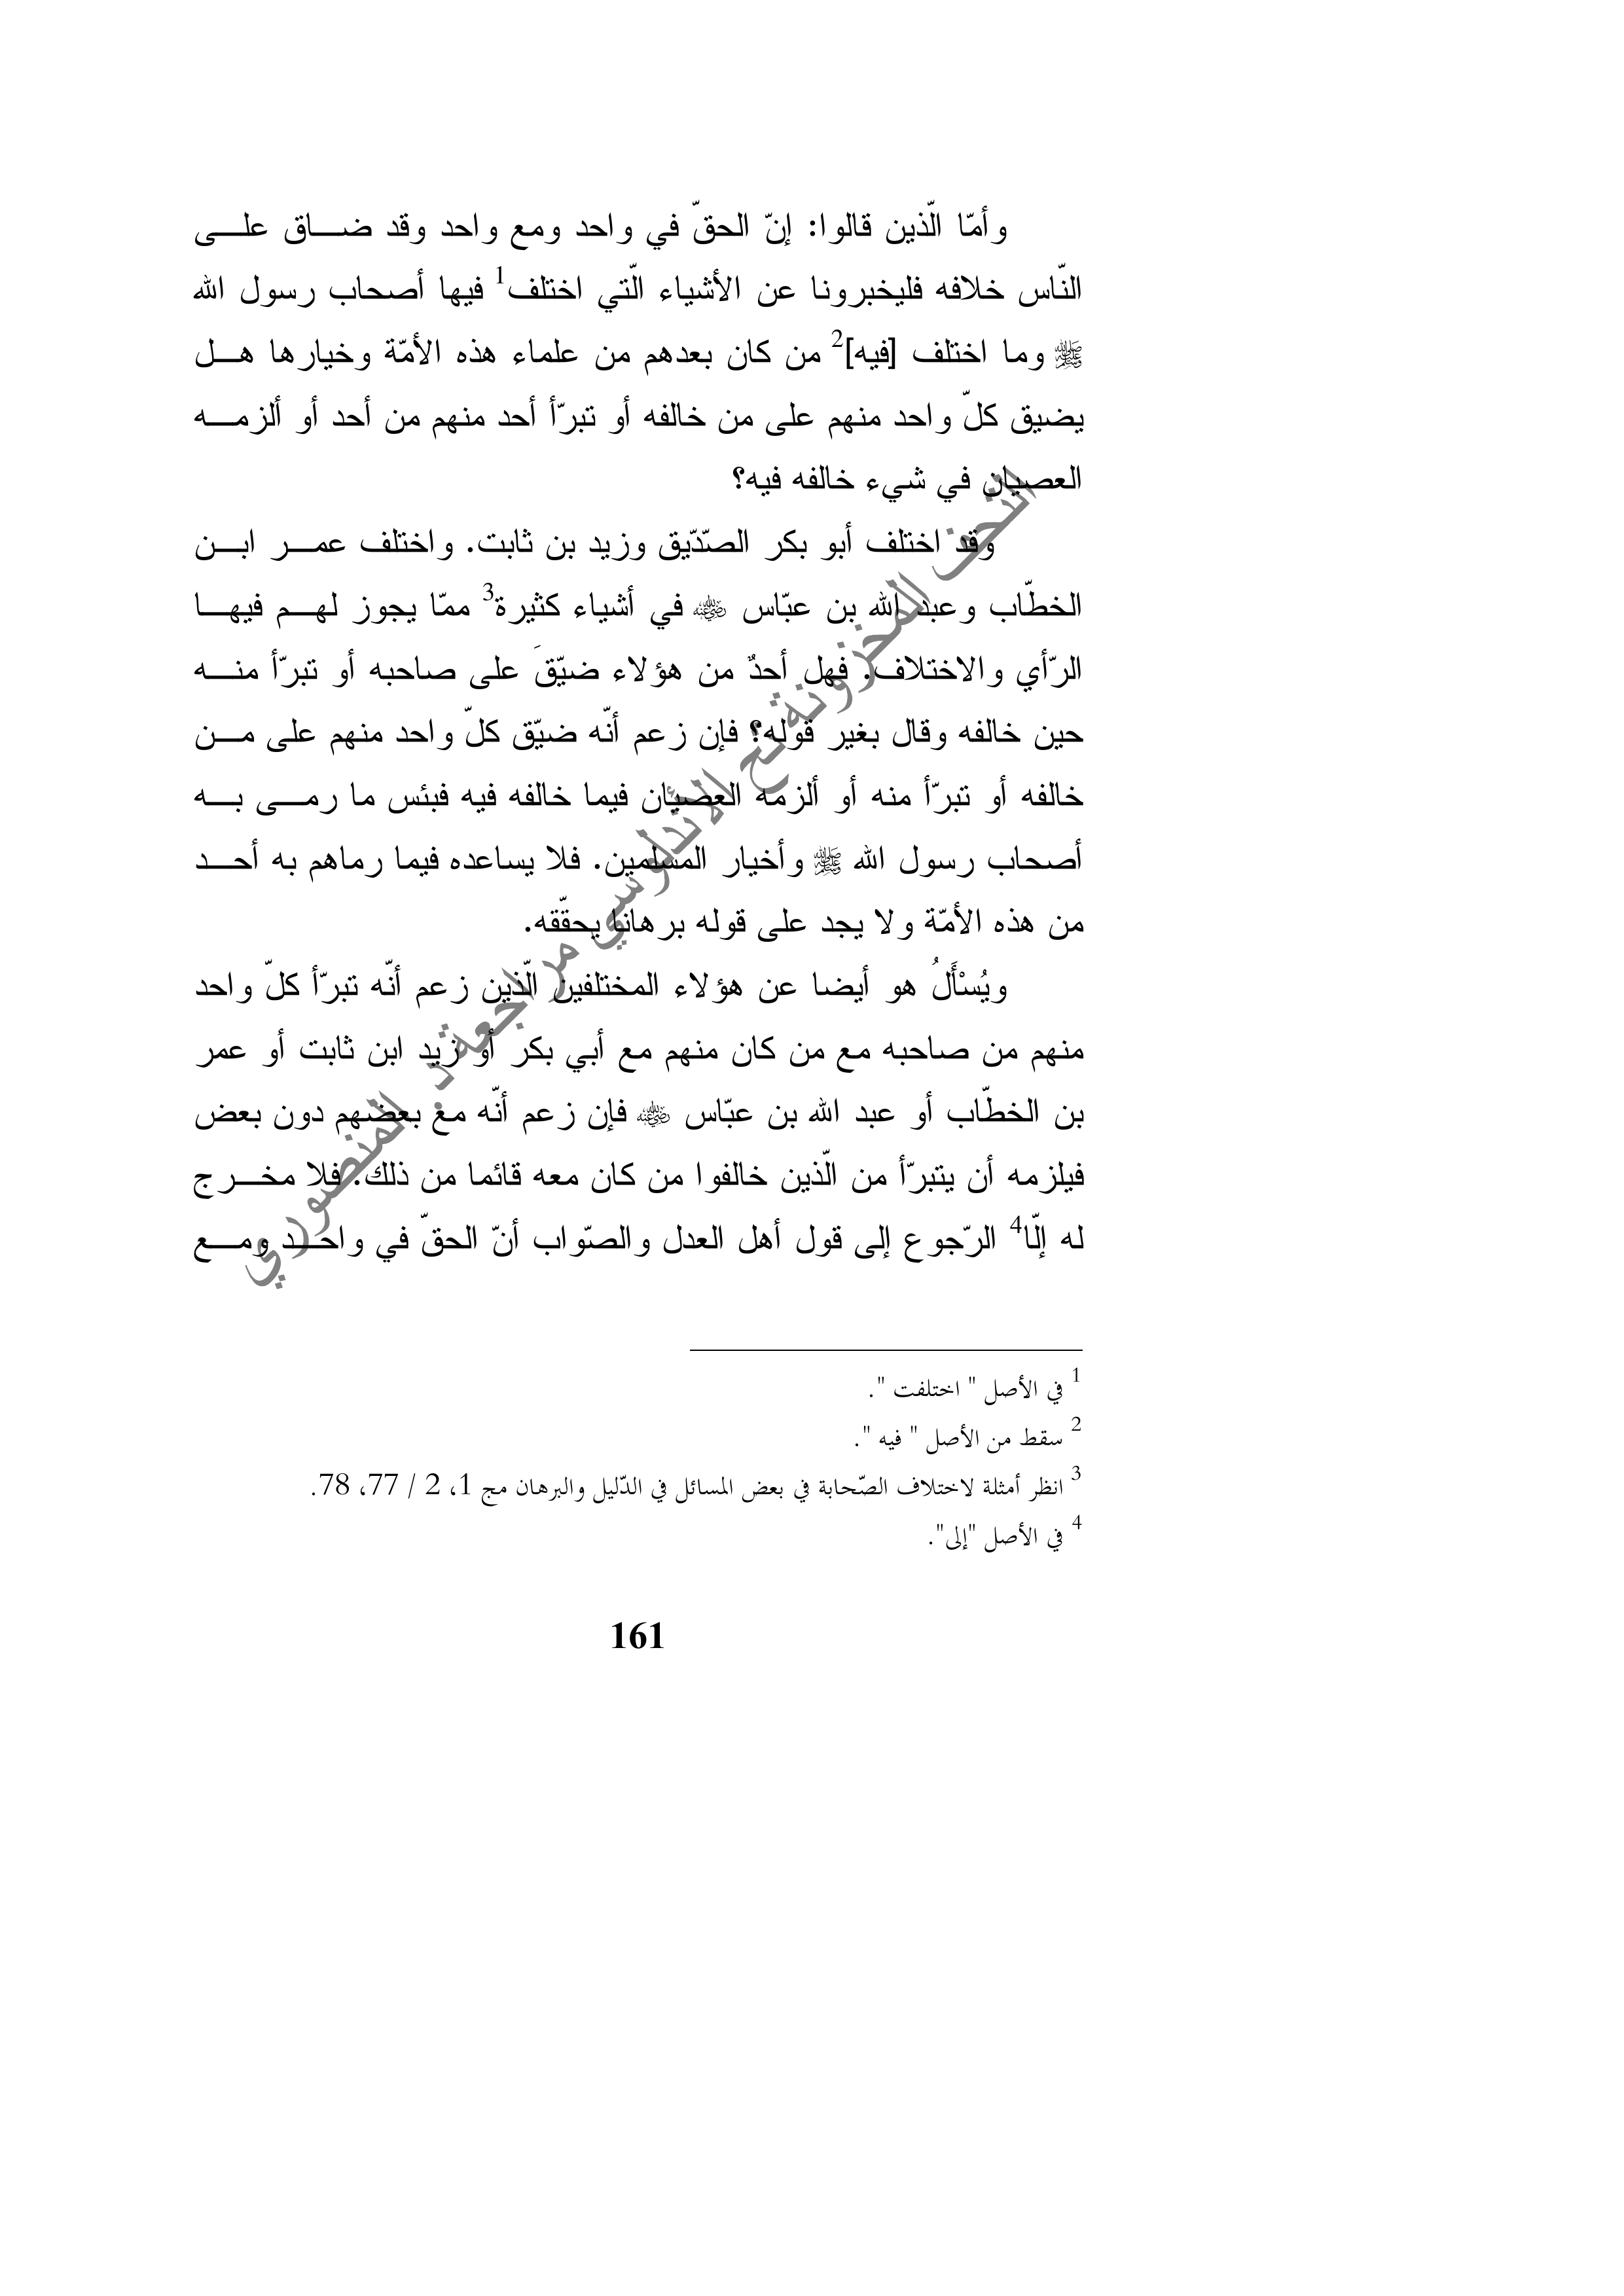 وأمّا الّذين قالوا: إنّ الحقّ في واحد ومع واحد وقد ضاق على
النّاس خلافه فليخبرونا عن الأشياء الّتي اختلف1 فيها أصحاب رسول الله
ﷺ وما اختلف [فيه]2 من كان بعدهم من علماء هذه الأمّة وخيارها هل
يضيق كلّ واحد منهم على من خالفه أو تبرّأ أحد منهم من أحد أو ألزمه
العصيان في شيء خالفه فيه؟
وقد اختلف أبو بكر الصّدّيق وزيد بن ثابت. واختلف عمر ابن
الخطّاب وعبد الله بن عبّاس رضي الله عنه في أشياء كثيرة3 ممّا يجوز لهم فيها
الرّأي والاختلاف. فهل أحدٌ من هؤلاء ضيّقَ على صاحبه أو تبرّأ منه
حين خالفه وقال بغير قوله؟ فإن زعم أنّه ضيّق كلّ واحد منهم على من
خالفه أو تبرّأ منه أو ألزمه العصيان فيما خالفه فيه فبئس ما رمى به
أصحاب رسول الله ﷺ وأخيار المسلمين. فلا يساعده فيما رماهم به أحد
من هذه الأمّة ولا يجد على قوله برهانا يحقّقه.
ويُسْأَلُ هو أيضا عن هؤلاء المختلفين الّذين زعم أنّه تبرّأ كلّ واحد
منهم من صاحبه مع من كان منهم مع أبي بكر أو زيد ابن ثابت أو عمر
بن الخطّاب أو عبد الله بن عبّاس رضي الله عنه فإن زعم أنّه مع بعضهم دون بعض
فيلزمه أن يتبرّأ من الّذين خالفوا من كان معه قائما من ذلك. فلا مخرج
له إلّا4 الرّجوع إلى قول أهل العدل والصّواب أنّ الحقّ في واحد ومع
1 في الأصل " اختلفت ".
2 سقط من الأصل " فيه ".
3 انظر أمثلة لاختلاف الصّحابة في بعض المسائل في الدّليل والبرهان مج 1، 2 / 77، 78.
4 في الأصل "إلى".
161
التحف المخزونة تح الأندلوسي مراجعة د. المنصوري